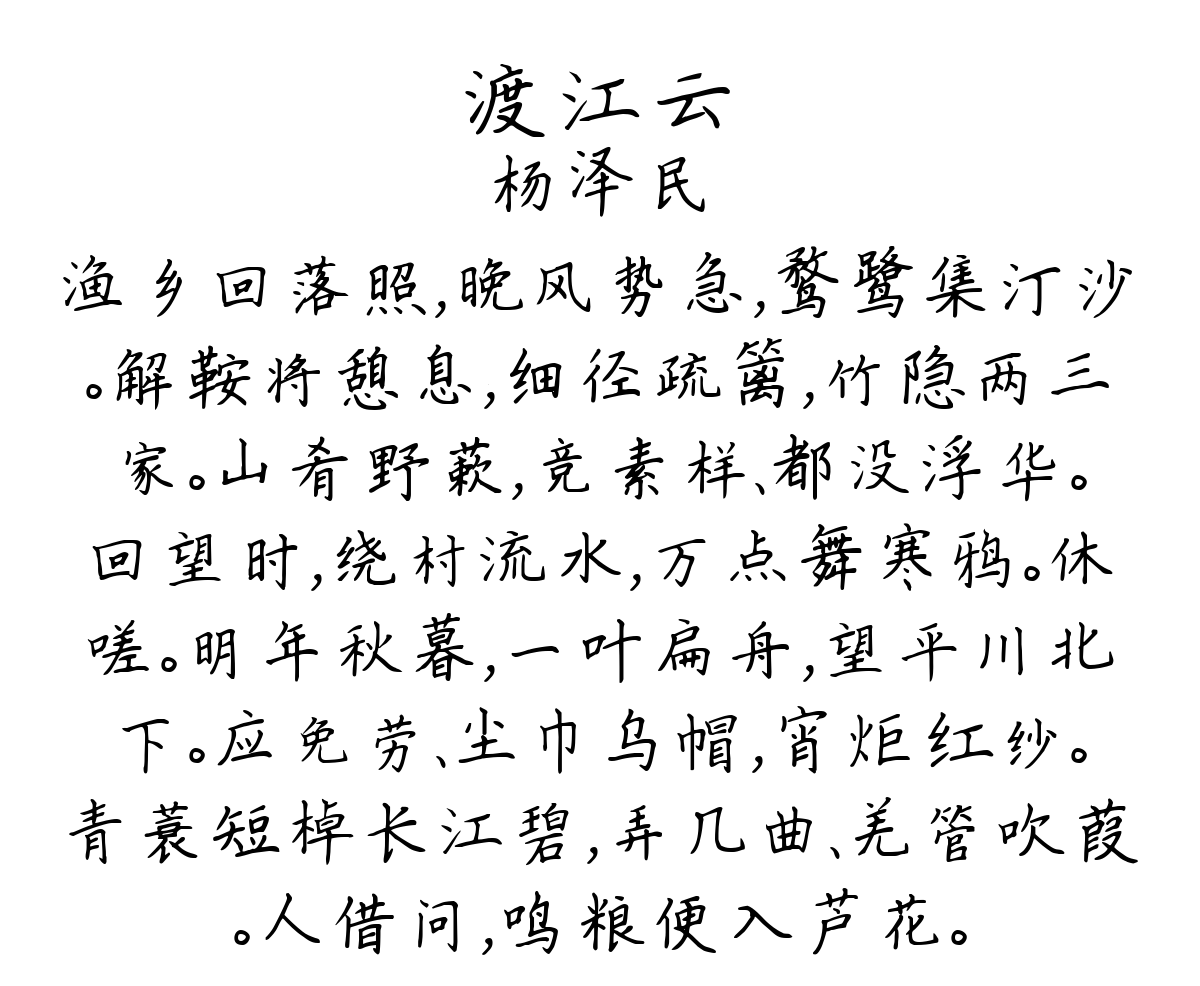 渡江云
杨泽民
渔乡回落照,晚风势急,鹜鹭集汀沙
。解鞍将憩息,细径疏篱,竹隐两三
家。山肴野蔌,竞素样、都没浮华。
回望时,绕村流水,万点舞寒鸦。休
嗟。明年秋暮,一叶扁舟,望平川北
下。应免劳、尘巾乌帽,宵炬红纱。
青蓑短棹长江碧,弄几曲、羌管吹葭
。人借问,鸣粮便入芦花。